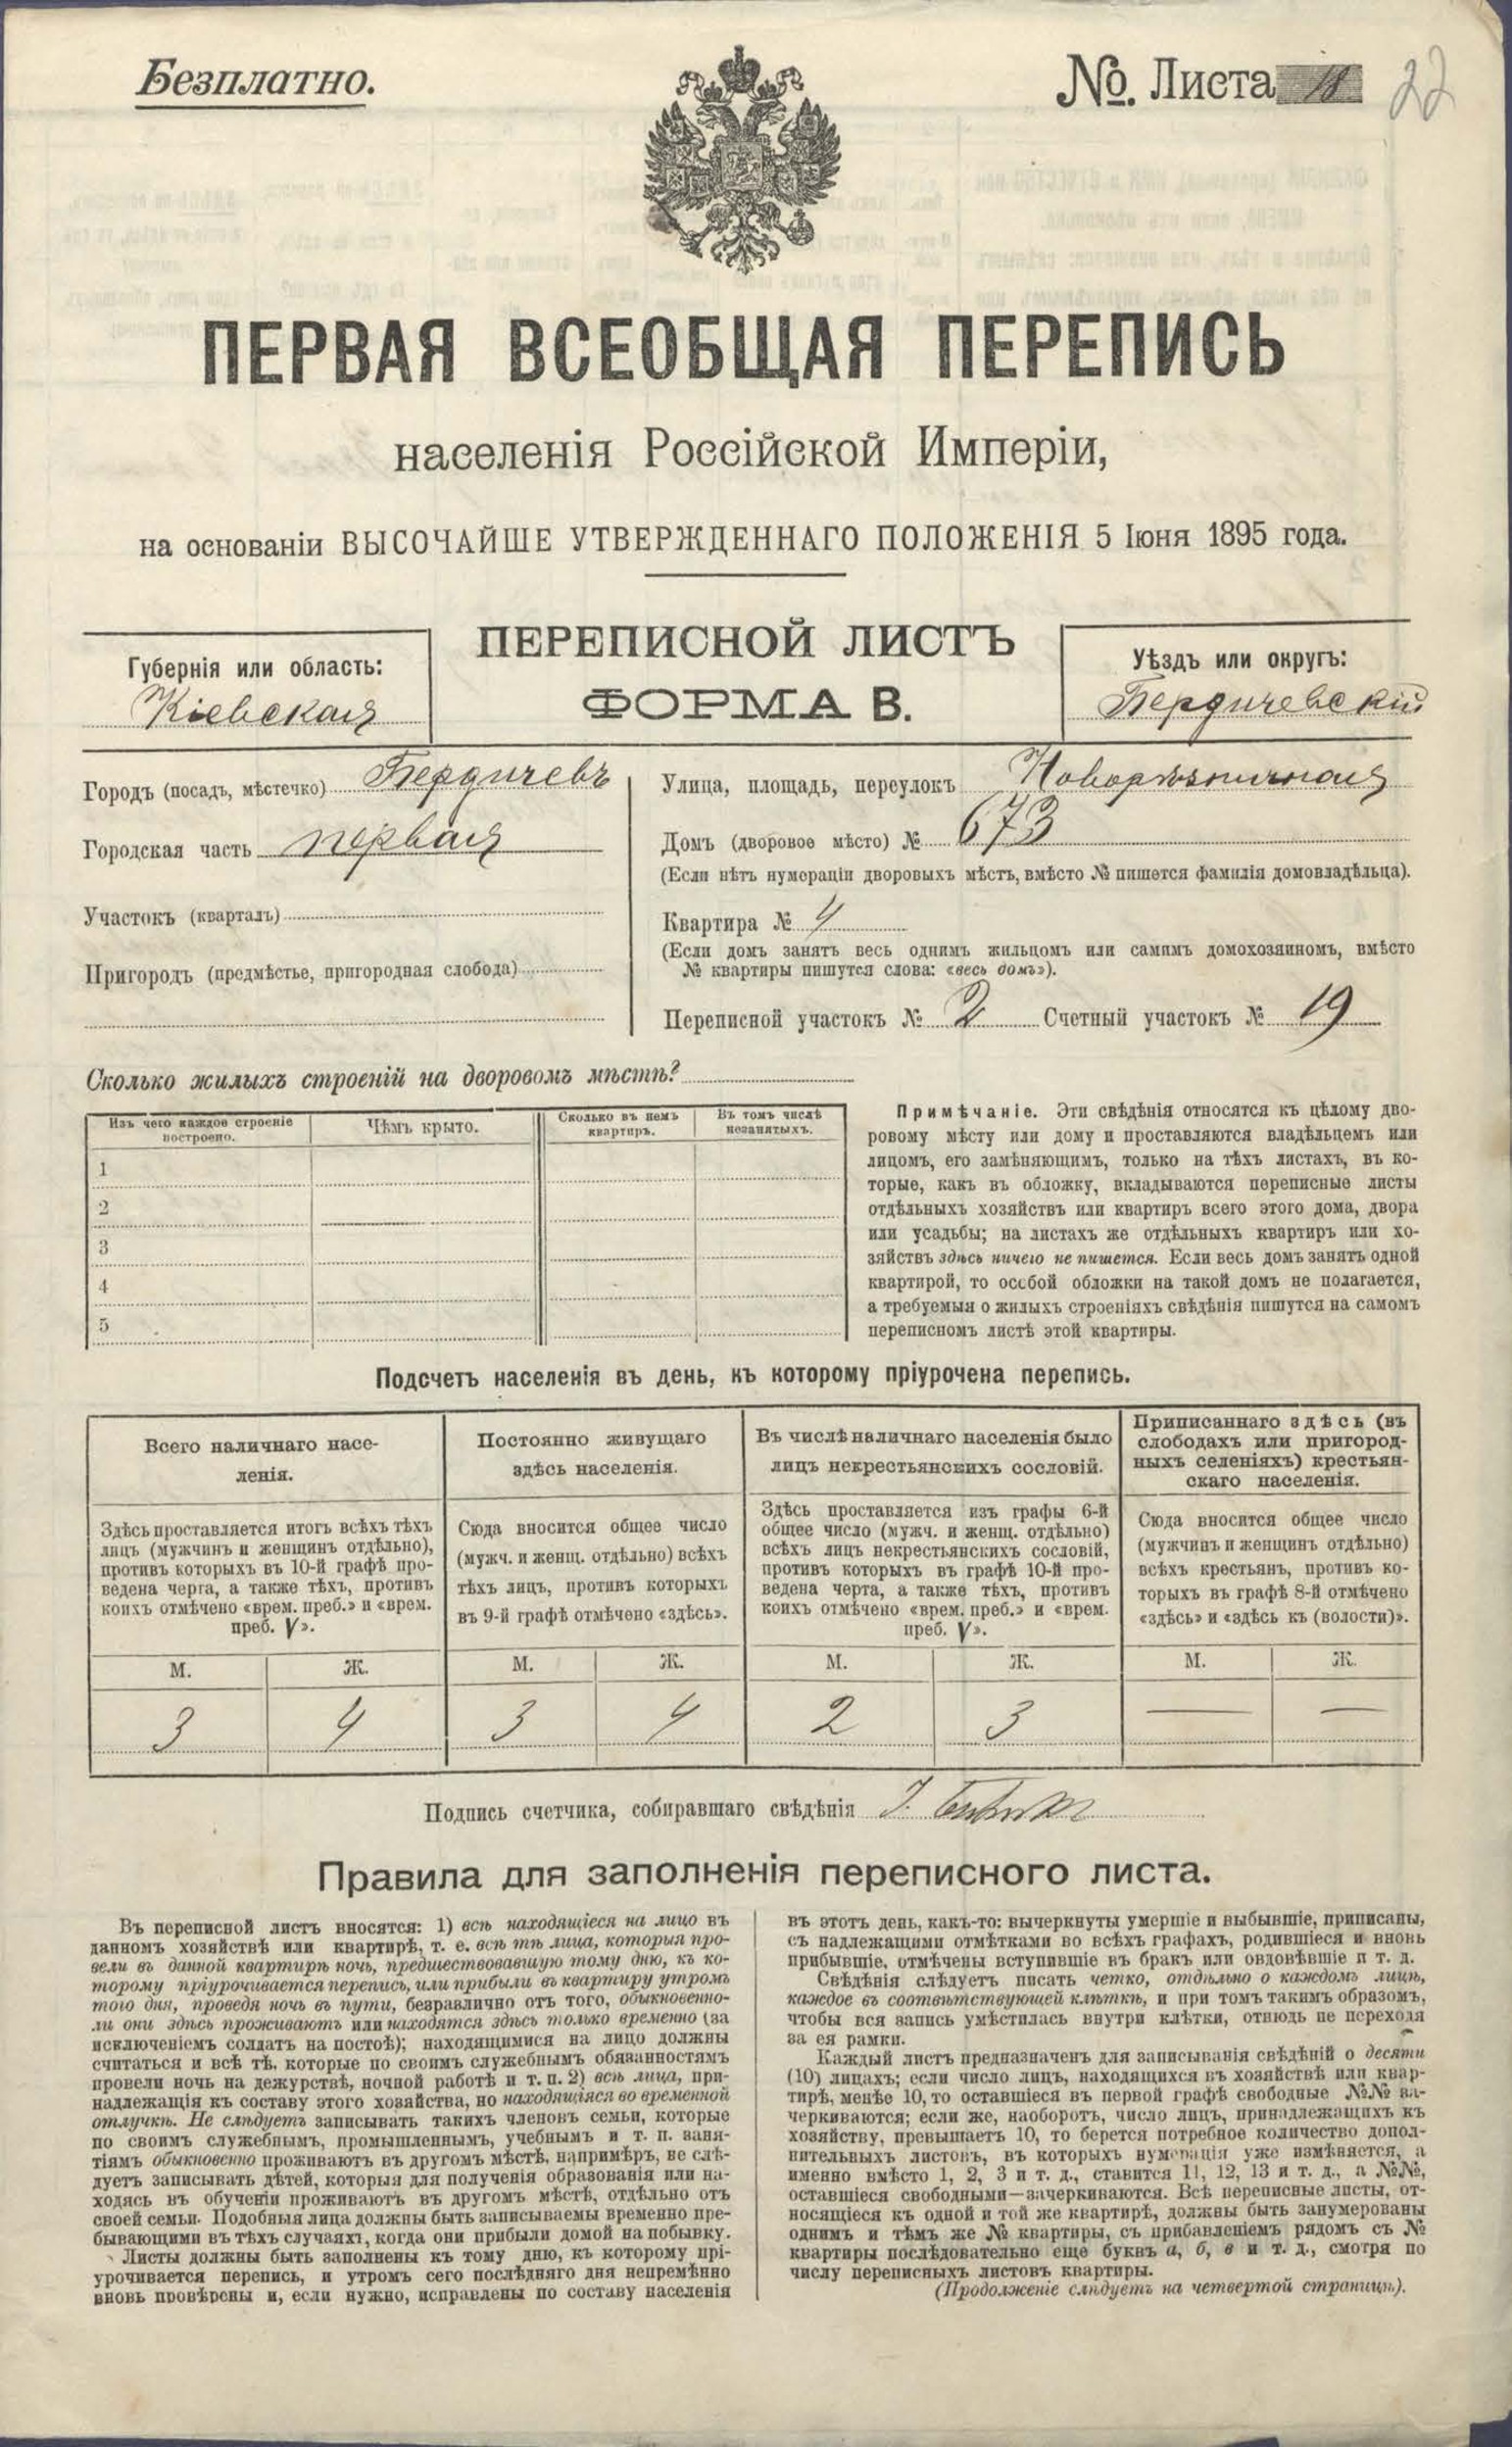 Безплатно.
№. Листа 18 22
ПЕРВАЯ ВСЕОБЩАЯ ПЕРЕПИСЬ
населенія Россійской Имперіи,
на основаніи ВЫСОЧАЙШЕ УТВЕРЖДЕННАГО ПОЛОЖЕНІЯ 5 Іюня 1895 года.
ПЕРЕПИСНОЙ ЛИСТЪ
ФОРМА В.
Губернія или область:
Кіевская
Уѣздъ или округъ:
Бердичевскій
Городъ (посадъ, мѣстечко) Бердичевъ
Городская часть первая
Участокъ (кварталъ)
Пригородъ (предмѣстье, пригородная слобода)
Улица, площадь, переулокъ Новорѣзничная
Домъ (дворовое мѣсто) № 673
(Если нѣтъ нумераціи дворовыхъ мѣстъ, вмѣсто № пишется фамилія домовладѣльца).
Квартира № 4
(Если домъ занятъ весь однимъ жильцомъ или самимъ домохозяиномъ, вмѣсто
№ квартиры пишутся слова: «весь домъ»).
Переписной участокъ № 2 Счетный участокъ № 19
Сколько жилыхъ строеній на дворовомъ мѣстѣ?
Изъ чего каждое строеніе
построено.
Чѣмъ крыто.
Сколько въ немъ
квартиръ.
Въ томъ числѣ
незанятыхъ.
1
2
3
4
5
Примѣчаніе. Эти свѣдѣнія относятся къ цѣлому дво-
ровому мѣсту или дому и проставляются владѣльцемъ или
лицомъ, его замѣняющимъ, только на тѣхъ листахъ, въ ко-
торые, какъ въ обложку, вкладываются переписные листы
отдѣльныхъ хозяйствъ или квартиръ всего этого дома, двора
или усадьбы; на листахъ же отдѣльныхъ квартиръ или хо-
зяйствъ здѣсь ничего не пишется. Если весь домъ занятъ одной
квартирой, то особой обложки на такой домъ не полагается,
а требуемыя о жилыхъ строеніяхъ свѣдѣнія пишутся на самомъ
переписномъ листѣ этой квартиры.
Подсчетъ населенія въ день, къ которому пріурочена перепись.
Всего наличнаго насе-
ленія.
Постоянно живущаго
здѣсь населенія.
Въ числѣ наличнаго населенія было
лицъ некрестьянскихъ сословій.
Приписаннаго здѣсь (въ
слободахъ или пригород-
ныхъ селеніяхъ) крестьян-
скаго населенія.
Здѣсь проставляется итогъ всѣхъ тѣхъ
лицъ (мужчинъ и женщинъ отдѣльно),
противъ которыхъ въ 10-й графѣ про-
ведена черта, а также тѣхъ, противъ
коихъ отмѣчено «врем. преб.» и «врем.
преб. V».
Сюда вносится общее число
(мужч. и женщ. отдѣльно) всѣхъ
тѣхъ лицъ, противъ которыхъ
въ 9-й графѣ отмѣчено «здѣсь».
Здѣсь проставляется изъ графы 6-й
общее число (мужч. и женщ. отдѣльно)
всѣхъ лицъ некрестьянскихъ сословій,
противъ которыхъ въ графѣ 10-й про-
ведена черта, а также тѣхъ, противъ
коихъ отмѣчено «врем. преб.» и «врем.
преб. V».
Сюда вносится общее число
(мужчинъ и женщинъ отдѣльно)
всѣхъ крестьянъ, противъ ко-
торыхъ въ графѣ 8-й отмѣчено
«здѣсь» и «здѣсь къ (волости)».
М. Ж. М. Ж. М. Ж. М. Ж.
3 4 3 4 2 3 — —
Подпись счетчика, собиравшаго свѣдѣнія
Правила для заполненія переписного листа.
Въ переписной листъ вносятся: 1) всѣ находящіеся на лицо въ
данномъ хозяйствѣ или квартирѣ, т. е. всѣ тѣ лица, которыя про-
вели въ данной квартирѣ ночь, предшествовавшую тому дню, къ ко-
торому пріурочивается перепись, или прибыли въ квартиру утромъ
того дня, проведя ночь въ пути, безразлично отъ того, обыкновенно-
ли они здѣсь проживаютъ или находятся здѣсь только временно (за
исключеніемъ солдатъ на постоѣ); находящимися на лицо должны
считаться и всѣ тѣ, которые по своимъ служебнымъ обязанностямъ
провели ночь на дежурствѣ, ночной работѣ и т. п. 2) всѣ лица, при-
надлежащія къ составу этого хозяйства, но находящіяся во временной
отлучкѣ. Не слѣдуетъ записывать такихъ членовъ семьи, которые
по своимъ служебнымъ, промышленнымъ, учебнымъ и т. п. заня-
тіямъ обыкновенно проживаютъ въ другомъ мѣстѣ, напримѣръ, не слѣ-
дуетъ записывать дѣтей, которыя для полученія образованія или на-
ходясь въ обученіи проживаютъ въ другомъ мѣстѣ, отдѣльно отъ
своей семьи. Подобныя лица должны быть записываемы временно пре-
бывающими въ тѣхъ случаяхъ, когда они прибыли домой на побывку.
Листы должны быть заполнены къ тому дню, къ которому прі-
урочивается перепись, и утромъ сего послѣдняго дня непремѣнно
вновь провѣрены и, если нужно, исправлены по составу населенія
въ этотъ день, какъ-то: вычеркнуты умершіе и выбывшіе, приписаны,
съ надлежащими отмѣтками во всѣхъ графахъ, родившіеся и вновь
прибывшіе, отмѣчены вступившіе въ бракъ или овдовѣвшіе и т. д.
Свѣдѣнія слѣдуетъ писать четко, отдѣльно о каждомъ лицѣ,
каждое въ соотвѣтствующей клѣткѣ, и при томъ такимъ образомъ,
чтобы вся запись умѣстилась внутри клѣтки, отнюдь не переходя
за ея рамки.
Каждый листъ предназначенъ для записыванія свѣдѣній о десяти
(10) лицахъ; если число лицъ, находящихся въ хозяйствѣ или квар-
тирѣ, менѣе 10, то оставшіеся въ первой графѣ свободные №№ за-
черкиваются; если же, наоборотъ, число лицъ, принадлежащихъ къ
хозяйству, превышаетъ 10, то берется потребное количество допол-
нительныхъ листовъ, въ которыхъ нумерація уже измѣняется, а
именно вмѣсто 1, 2, 3 и т. д., ставится 11, 12, 13 и т. д., а №№,
оставшіеся свободными—зачеркиваются. Всѣ переписные листы, от-
носящіеся къ одной и той же квартирѣ, должны быть занумерованы
однимъ и тѣмъ же № квартиры, съ прибавленіемъ рядомъ съ №
квартиры послѣдовательно еще буквъ а, б, в и т. д., смотря по
числу переписныхъ листовъ квартиры.
(Продолженіе слѣдуетъ на четвертой страницѣ).